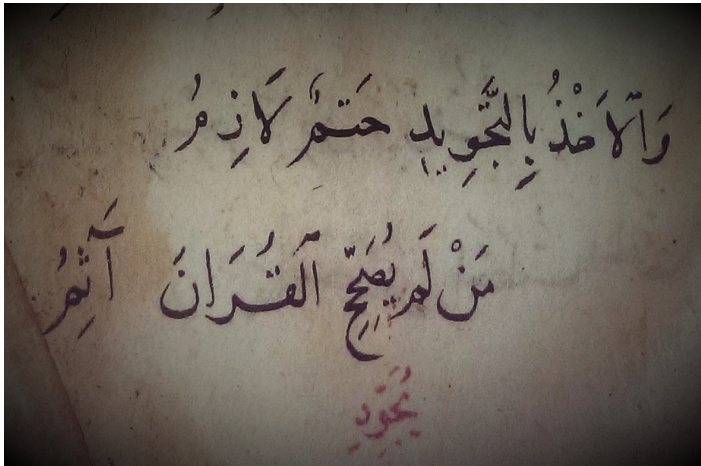 وَالْاَخْذُ بِالتَّجْوِيدِ حَتْمٌ لَازِمُ
مَنْ لَمْ يُصَحِّحِ الْقُرَانَ آثِمُ
يُجَوِّدِ